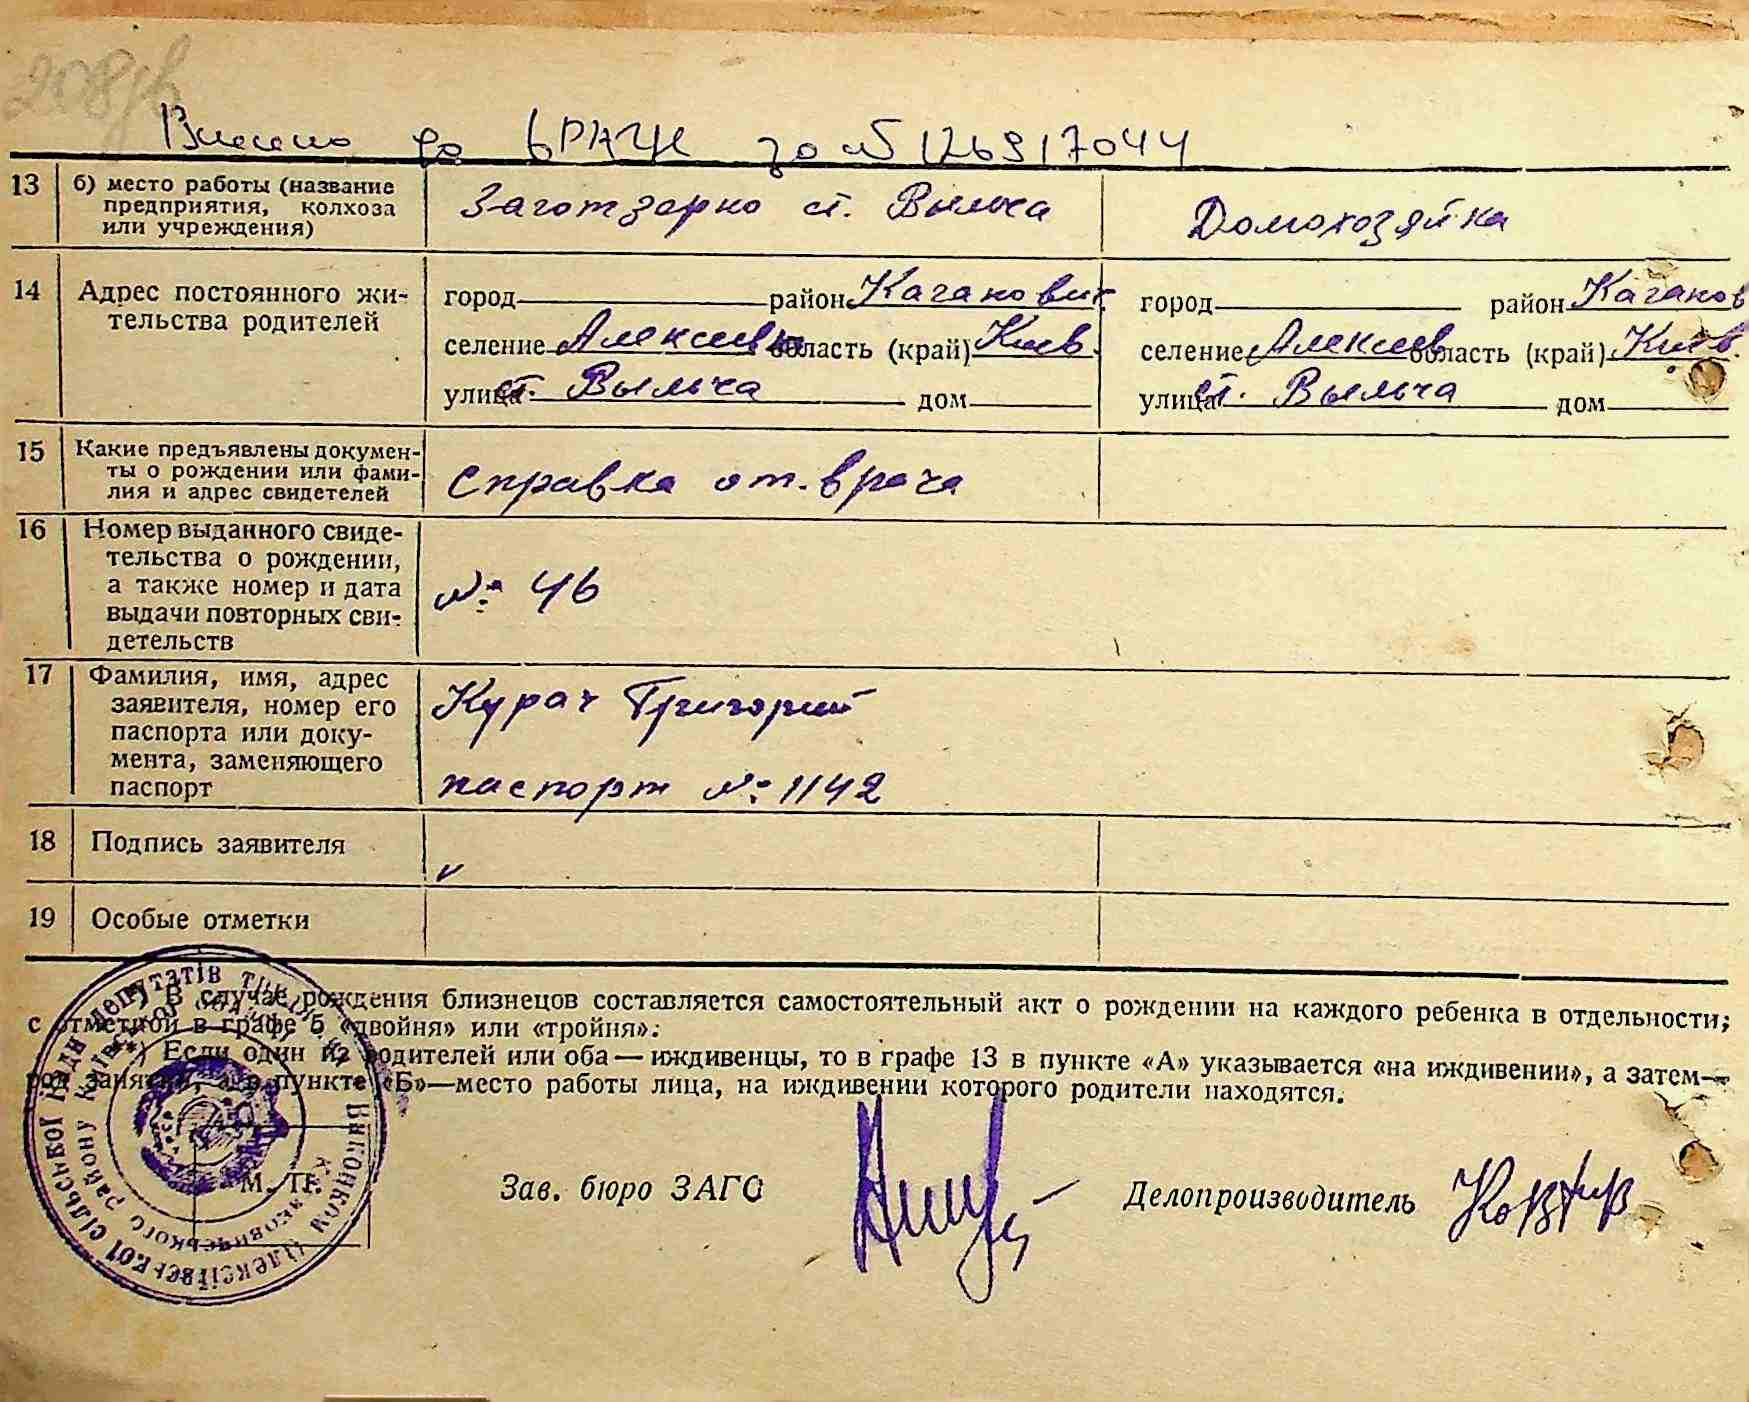 Внесено до ДРАЦС за № 126917044
13 б) место работы (название предприятия, колхоза или учреждения) Заготзерно ст. Вильча Домохозяйка
14 Адрес постоянного жительства родителей
город район Каганович. город район Каганов
селение Алексеевк область (край) Киев. селение Алексеев область (край) Киев.
улица ст. Вильча дом улица ст. Вильча дом
15 Какие предъявлены докумен-
ты о рождении или фами-
лия и адрес свидетелей
справка от. врача
16 Номер выданного свиде-
тельства о рождении,
а также номер и дата
выдачи повторных сви-
детельств
№: 46
17 Фамилия, имя, адрес
заявителя, номер его
паспорта или доку-
мента, заменяющего
паспорт
Курач Григорий
паспорт №: 1142
18 Подпись заявителя
19 Особые отметки
*) В случае рождения близнецов составляется самостоятельный акт о рождении на каждого ребенка в отдельности;
с отметкой в графе 5 «двойня» или «тройня».
**) Если один из родителей или оба — иждивенцы, то в графе 13 в пункте «А» указывается «на иждивении», а затем—
род занятий, а в пункте «Б»—место работы лица, на иждивении которого родители находятся.
М. П.
Зав. бюро ЗАГС Делопроизводитель